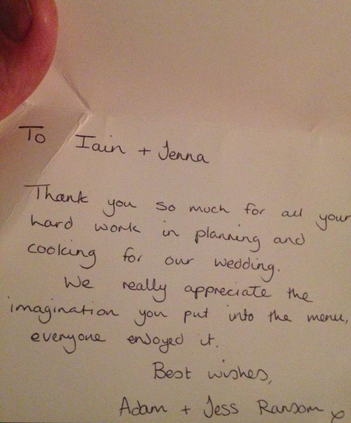 To Iain + Jenna
Thank you so much for all your
hard work in planning and
cooking for our wedding.
We really appreciate the
imagination you put into the menu,
everyone enjoyed it.
Best wishes,
Adam + Jess Ransom x